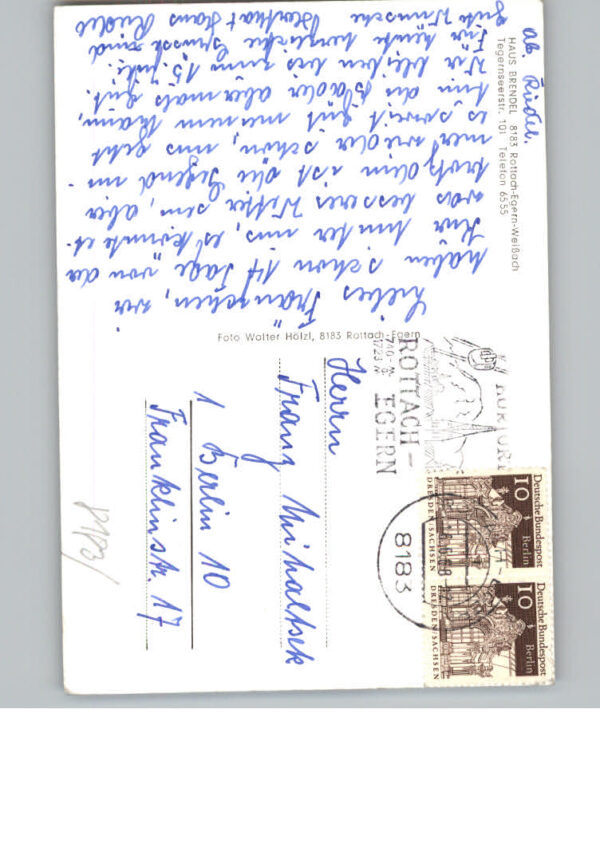 Ab. Riedel.
HAUS BRENDEL 8183 Rottach-Egern-Weißach
Tegernseerstr. 101 Telefon 6555
Liebes Fränzchen, wir
haben schon 14 Tage von der
Kur hinter uns, es könnte et-
was besseres Wetter sein, aber
trotzdem ist die Gegend im-
mer wieder schön, uns geht
es soweit gut nun kann,
die Bäder abermals gut.
Wir bleiben bis zum 15. Juli.
Für heute herzliche Grüsse und
gute Wünsche Berthat Hans Riedel
Foto Walter Hölzl, 8183 Rottach-Egern
Herrn
Franz Mihaltsek
1 Berlin 10
Franklinstr. 17
8183/
ROTTACH-
EGERN
KURORT
8183
Deutsche Bundespost
Berlin
10
DRESDEN/SACHSEN
Deutsche Bundespost
Berlin
10
DRESDEN/SACHSEN